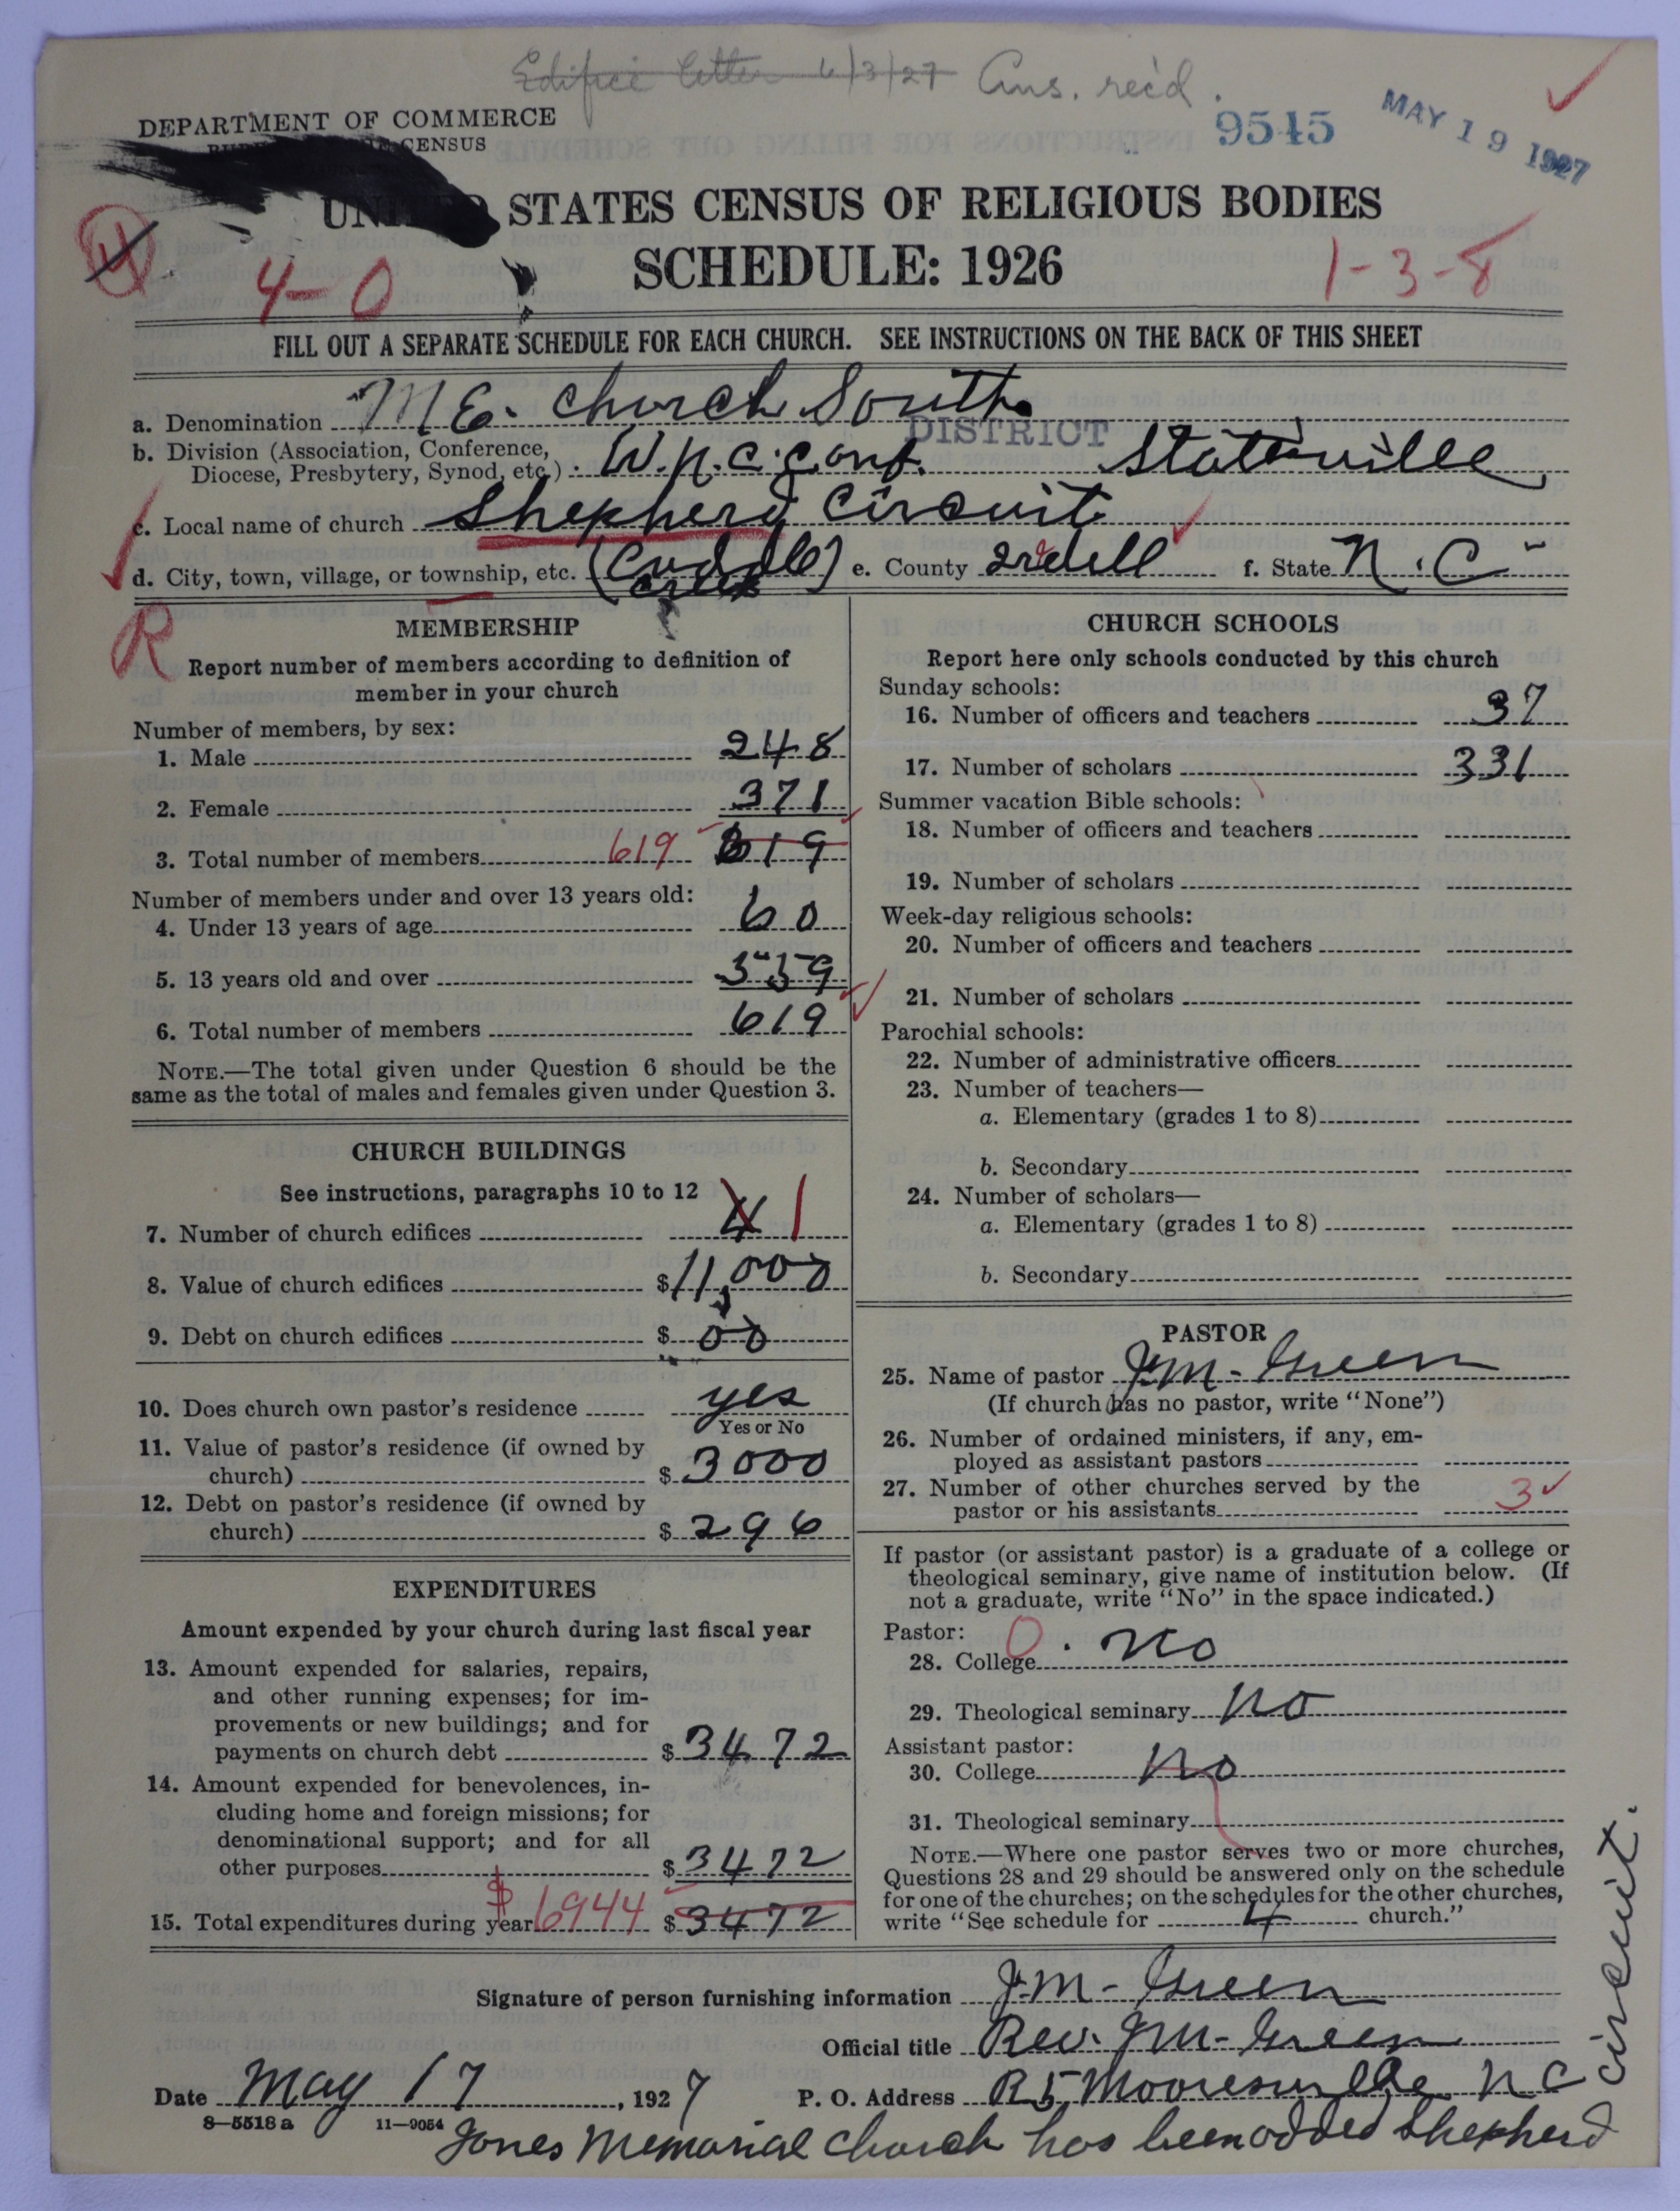 Edifice letter 6/3/27 Ans. rec'd.
9545
MAY 19 1927
DEPARTMENT OF COMMERCE
CENSUS
UNITED STATES CENSUS OF RELIGIOUS BODIES
SCHEDULE: 1926
4
4-0
1-3-8
FILL OUT A SEPARATE SCHEDULE FOR EACH CHURCH. SEE INSTRUCTIONS ON THE BACK OF THIS SHEET
a. Denomination M E. Church South
DISTRICT
b. Division (Association, Conference, Diocese, Presbytery, Synod, etc.) W.N.C. Conf. Statesville
c. Local name of church Shepherd Circuit
d. City, town, village, or township, etc. (Coddle) e. County Iredell f. State N.C.
Creek
R
MEMBERSHIP
Report number of members according to definition of
member in your church
Number of members, by sex:
1. Male 248
2. Female 371
3. Total number of members 619 619
Number of members under and over 13 years old:
4. Under 13 years of age 60
5. 13 years old and over 559
6. Total number of members 619
NOTE.—The total given under Question 6 should be the
same as the total of males and females given under Question 3.
CHURCH BUILDINGS
See instructions, paragraphs 10 to 12
7. Number of church edifices 4 1
8. Value of church edifices $11,000
9. Debt on church edifices $ 00
10. Does church own pastor's residence yes
Yes or No
11. Value of pastor's residence (if owned by
church) $ 3000
12. Debt on pastor's residence (if owned by
church) $ 296
EXPENDITURES
Amount expended by your church during last fiscal year
13. Amount expended for salaries, repairs,
and other running expenses; for im-
provements or new buildings; and for
payments on church debt $ 3472
14. Amount expended for benevolences, in-
cluding home and foreign missions; for
denominational support; and for all
other purposes $ 3472
15. Total expenditures during year $6944 $ 3472
CHURCH SCHOOLS
Report here only schools conducted by this church
Sunday schools:
16. Number of officers and teachers 37
17. Number of scholars 331
Summer vacation Bible schools:
18. Number of officers and teachers
19. Number of scholars
Week-day religious schools:
20. Number of officers and teachers
21. Number of scholars
Parochial schools:
22. Number of administrative officers
23. Number of teachers—
a. Elementary (grades 1 to 8)
b. Secondary
24. Number of scholars—
a. Elementary (grades 1 to 8)
b. Secondary
PASTOR
25. Name of pastor J.M. Green
(If church has no pastor, write "None")
26. Number of ordained ministers, if any, em-
ployed as assistant pastors
27. Number of other churches served by the
pastor or his assistants 3
If pastor (or assistant pastor) is a graduate of a college or
theological seminary, give name of institution below. (If
not a graduate, write "No" in the space indicated.)
Pastor:
28. College 0. No
29. Theological seminary No
Assistant pastor:
30. College No
31. Theological seminary
NOTE.—Where one pastor serves two or more churches,
Questions 28 and 29 should be answered only on the schedule
for one of the churches; on the schedules for the other churches,
write "See schedule for 4 church."
Signature of person furnishing information J.M. Green
Official title Rev. J.M. Green
Date May 17, 1927 P. O. Address R5 Mooresville N C
8—5518 a 11—9054
Jones Memorial Church has been added Shepherd
circuit.